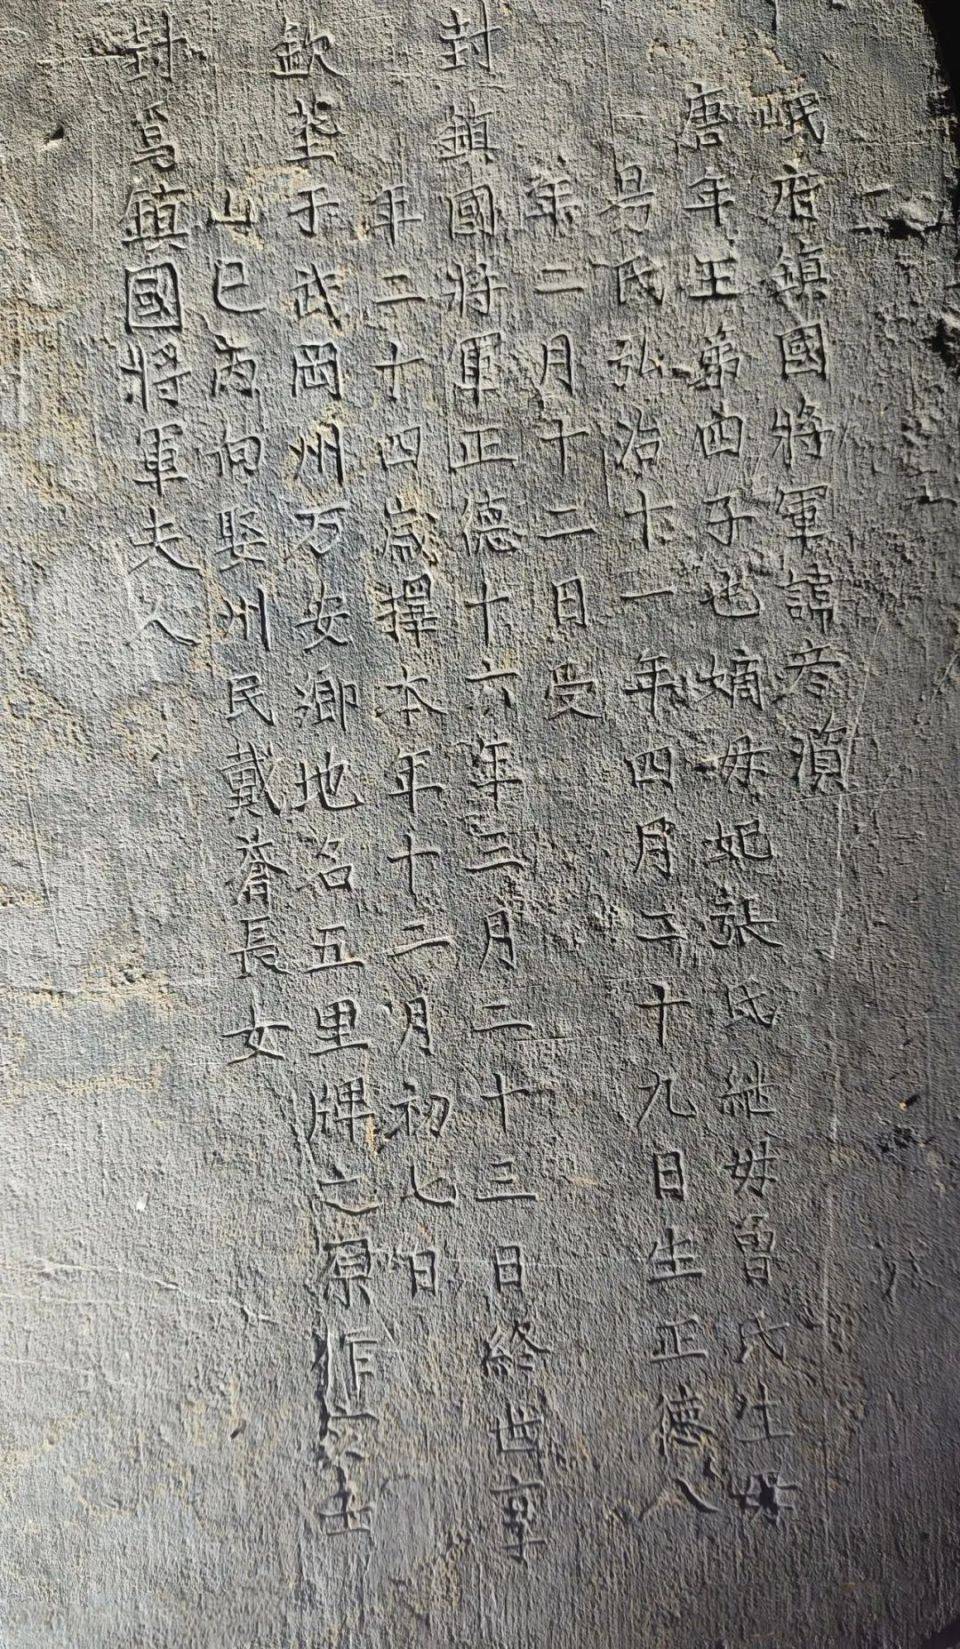 岷府鎮國將軍諱彦
唐年王苐四子也嫡母妃張氏継母曾氏生母
易氏弘治十一年四月二十九日生正德八
年二月十二日受
封鎮國將軍正德十六年三月二十三日終世享
年二十四歲擇本年十二月初七日
欽塟于武岡州万安鄉地名五里牌之原作
山巳丙向娶州民戴長女
封為鎮國將軍夫人